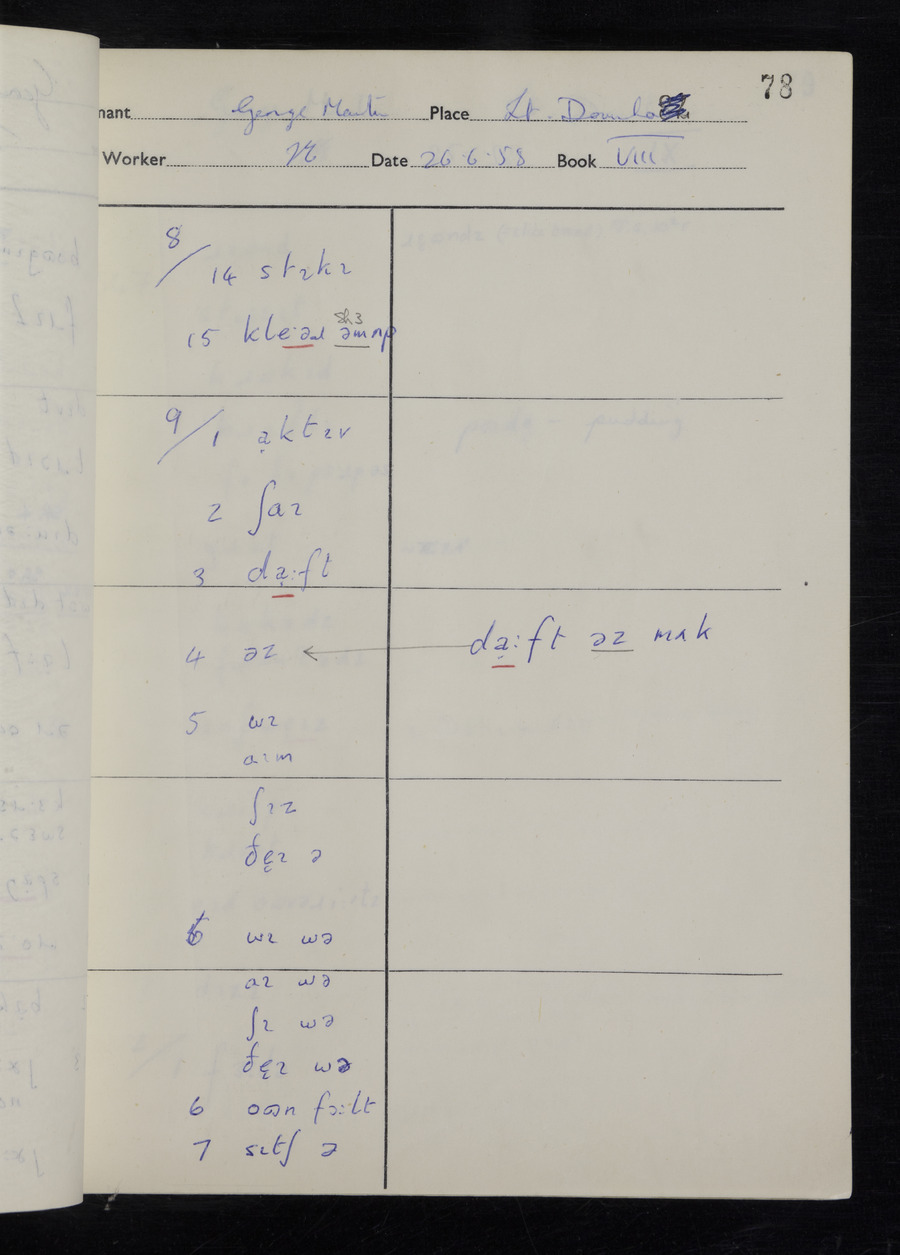 78
nant George Martin Place Lt. Downha
Worker Date 26.6.58 Book VIII
8/14 stɪkɪ
sh3
15 kle:əɹ əm ʌp
9/1 ạktɪv
2 ʃaɪ
3 dạ:ft
4 əz ← dạ:ft əz mʌk
5 wɪ
aɪm
ʃɪz
ðẹɪ ə
6 wɪ wə
aɪ wə
ʃɪ wə
ðẹɪ wə
6 oʊn fɔ:lt
7 sɪtʃ ə